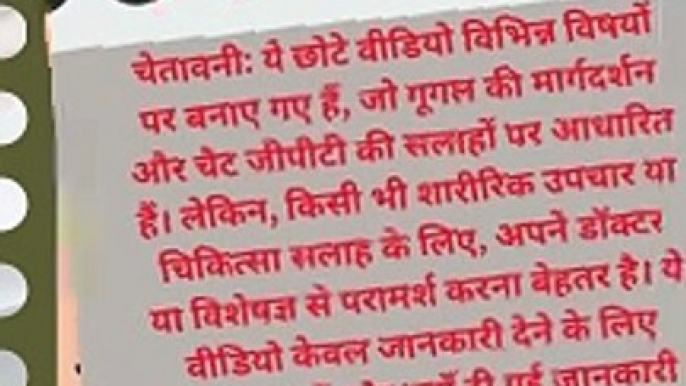 चेतावनी: ये छोटे वीडियो विभिन्न विषयों
पर बनाए गए हैं, जो गूगल की मार्गदर्शन
और चैट जीपीटी की सलाहों पर आधारित
हैं। लेकिन, किसी भी शारीरिक उपचार या
चिकित्सा सलाह के लिए, अपने डॉक्टर
या विशेषज्ञ से परामर्श करना बेहतर है। ये
वीडियो केवल जानकारी देने के लिए
जानकारी